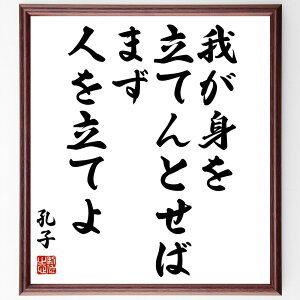 我が身を
立てんとせば
まず
人を立てよ
孔子